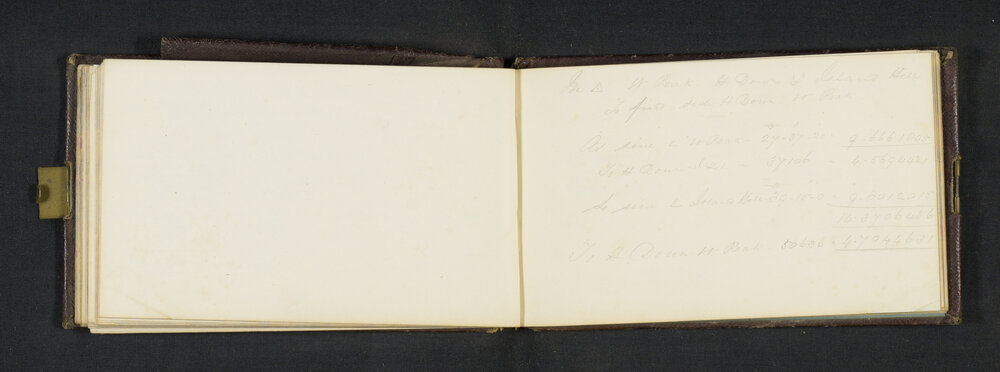 In Δ W Peak H Down & Island Hole
To find side H Down W Peak
As sine L W Peak - 27-37-20 - 9.6661805
To H Down - 37106 - 4.5694421
So sine L Island Hole 39-15-0 - 9.8012015
14.3706436
To H Down W Peak - 50636 - 4.7044631